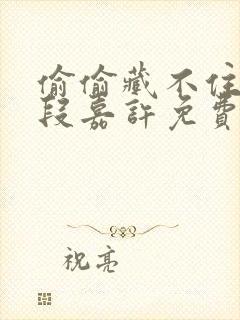 偷偷藏不住
段嘉許免費
祝亮